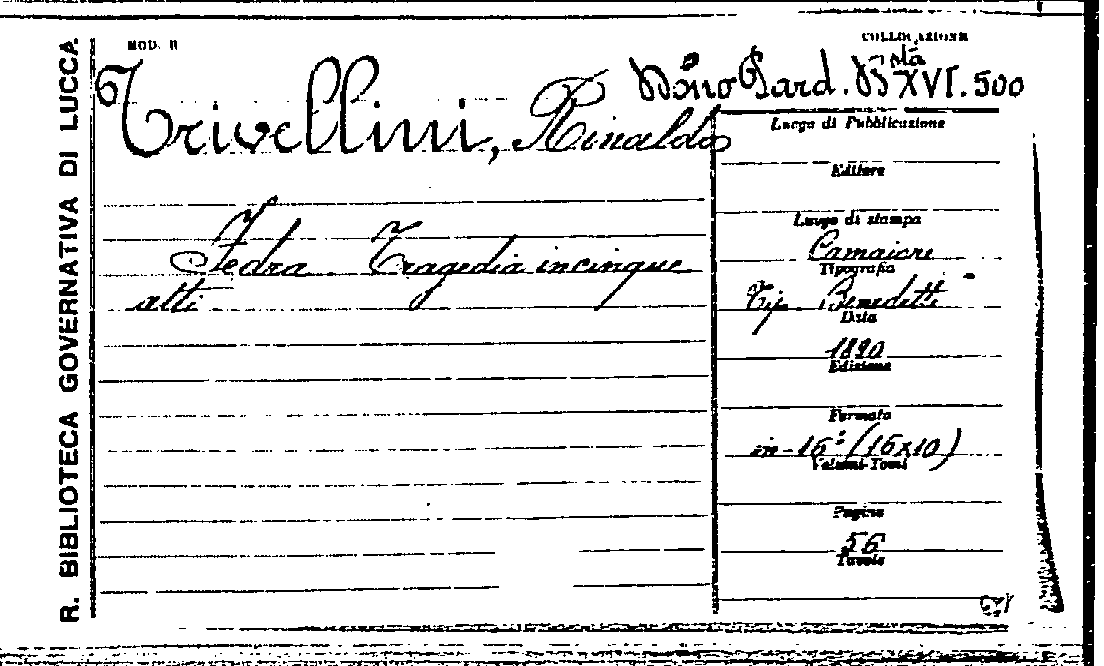 R. BIBLIOTECA GOVERNATIVA DI LUCCA
MOD. B
COLLOCAZIONE
Dono Pard. Bsta XVI. 500
Trivellini, Rinaldo
Fedra. Tragedia in cinque
atti
Luogo di Pubblicazione
Editore
Luogo di stampa
Camaiore
Tipografia
Tip. Benedetti
Data
1890
Edizione
Formato
in-16° (16x10)
Volumi-Tomi
Pagine
56
Tavole